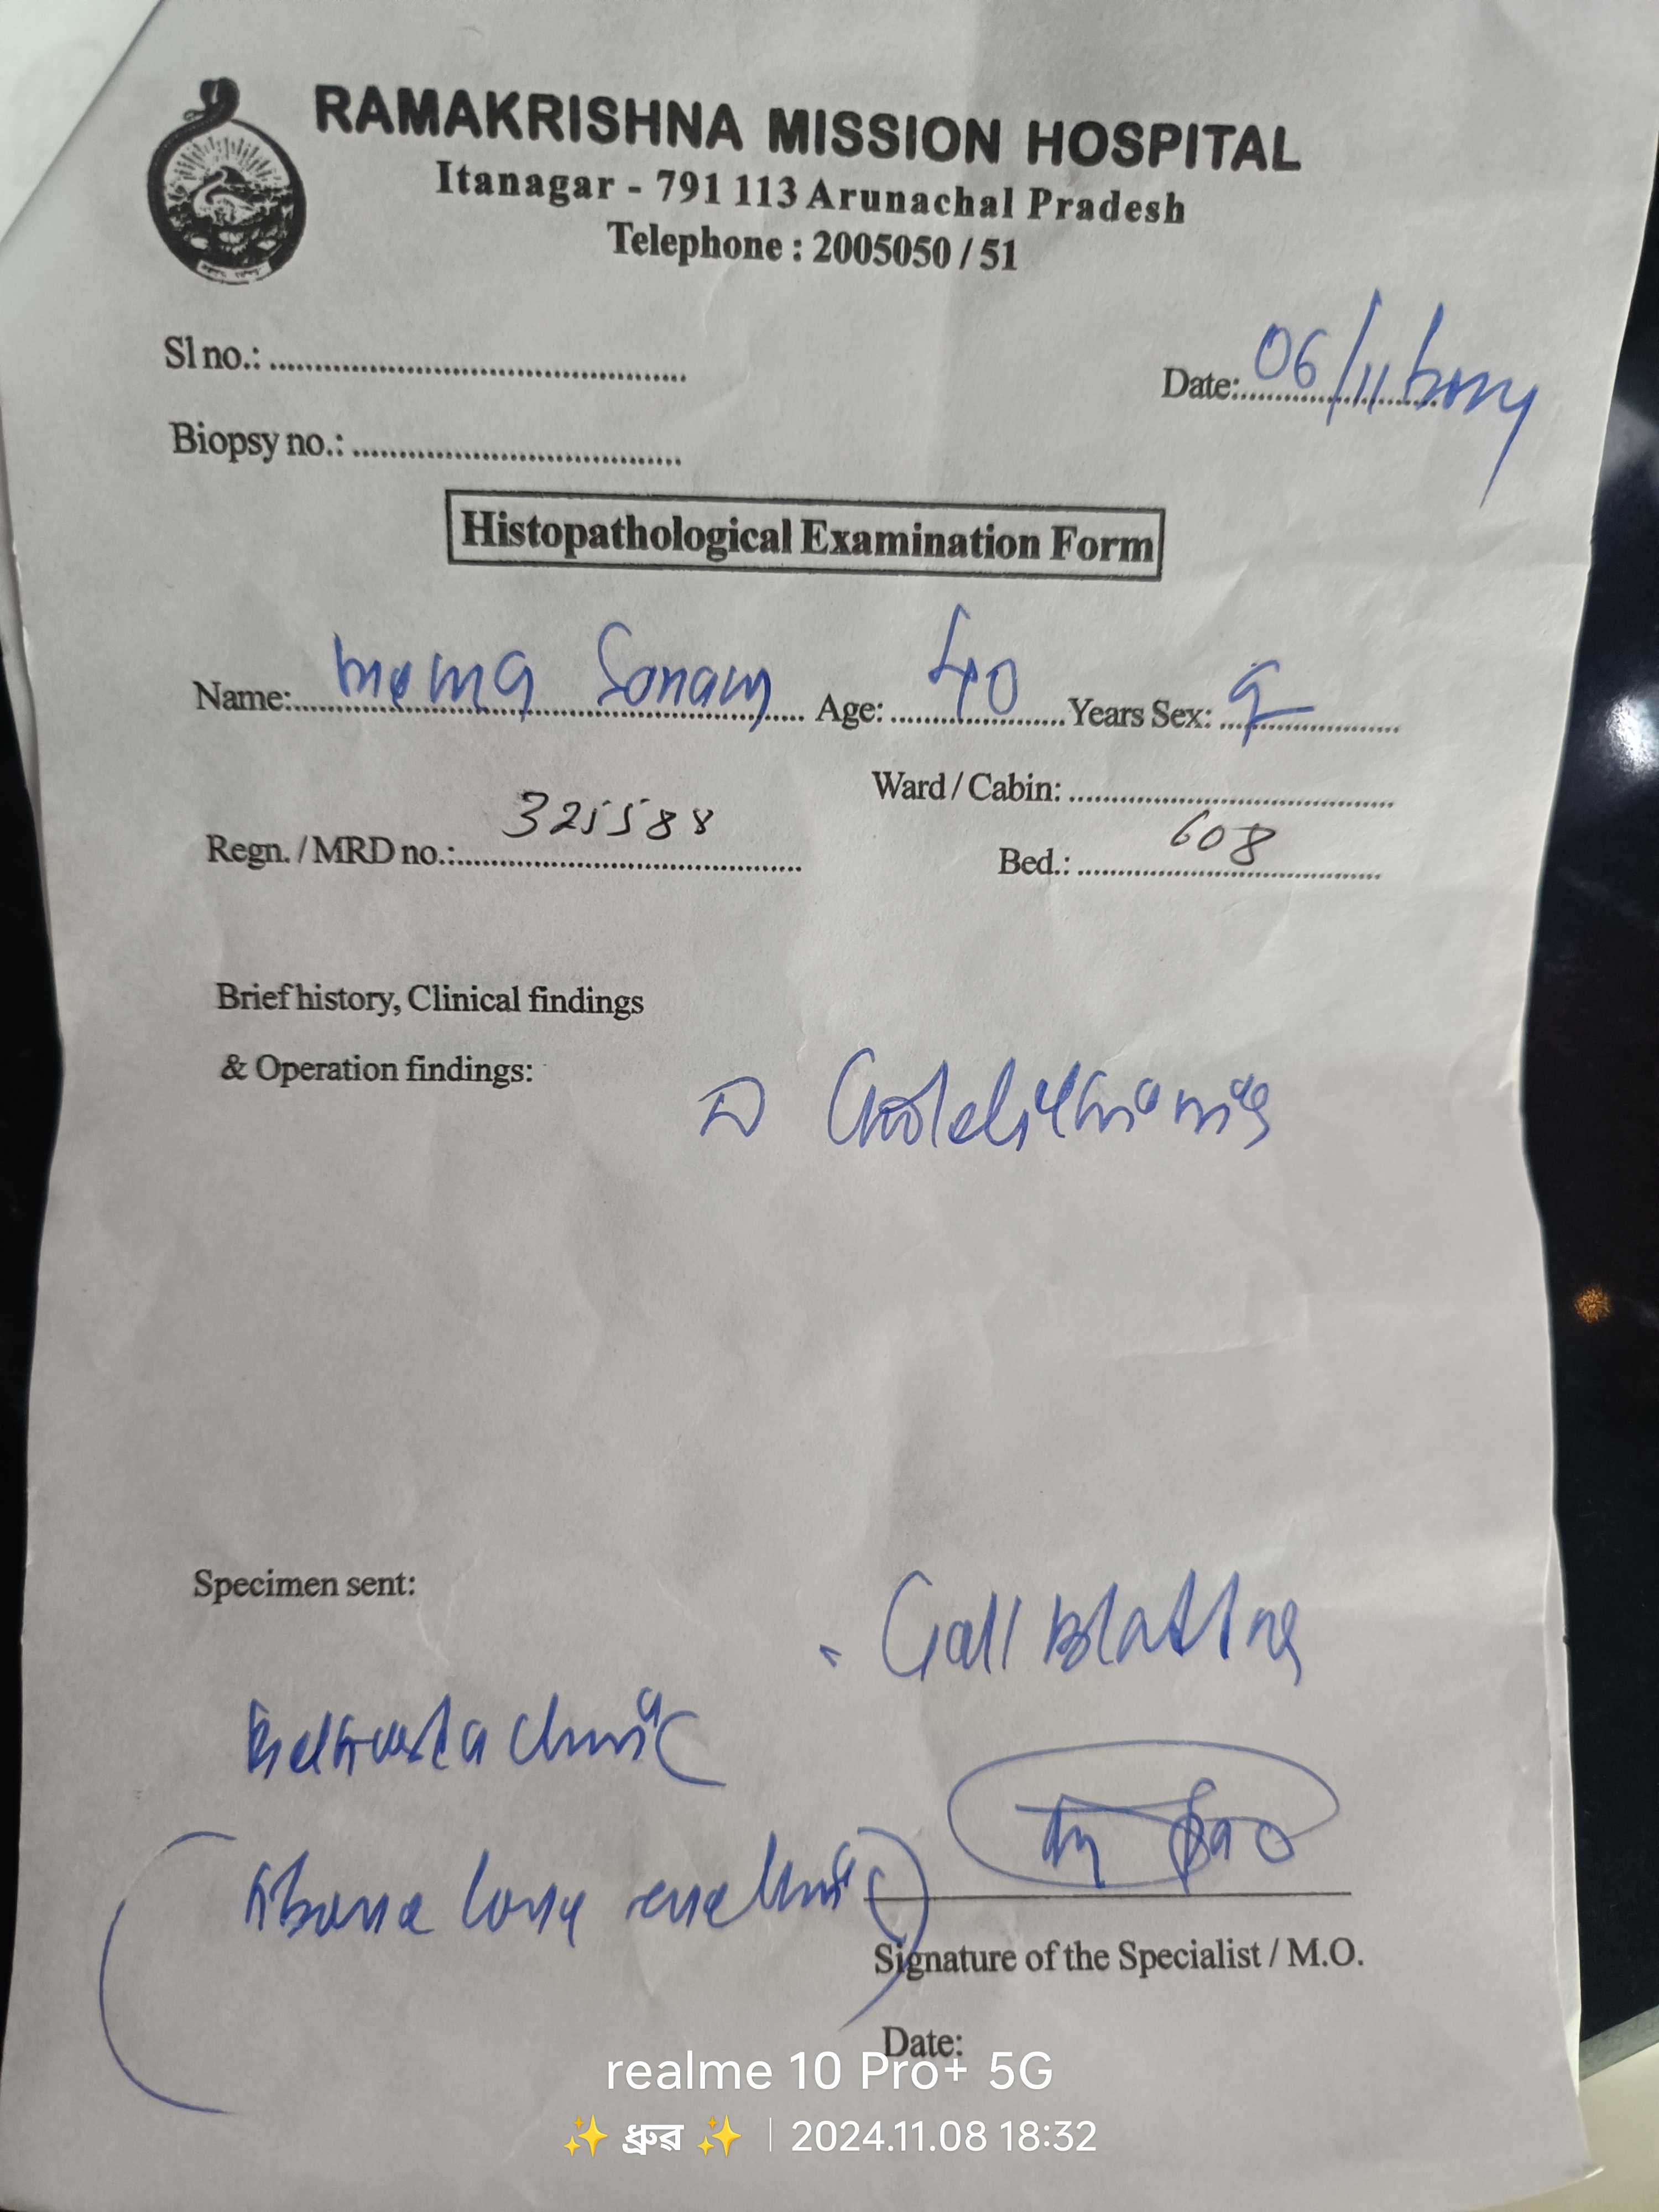 RAMAKRISHNA MISSION HOSPITAL
Itanagar - 791 113 Arunachal Pradesh
Telephone : 2005050 / 51
Sl no.:
Date: 06/11/2024
Biopsy no.:
Histopathological Examination Form
Name: Sonam Age: 40 Years Sex: ♀
Ward / Cabin:
Regn. / MRD no.: 325588
Bed.: 608
Brief history, Clinical findings
& Operation findings:
Specimen sent:
Gall Bladder
Signature of the Specialist / M.O.
Date:
realme 10 Pro+ 5G
✨ ধ্রুৱ ✨ | 2024.11.08 18:32